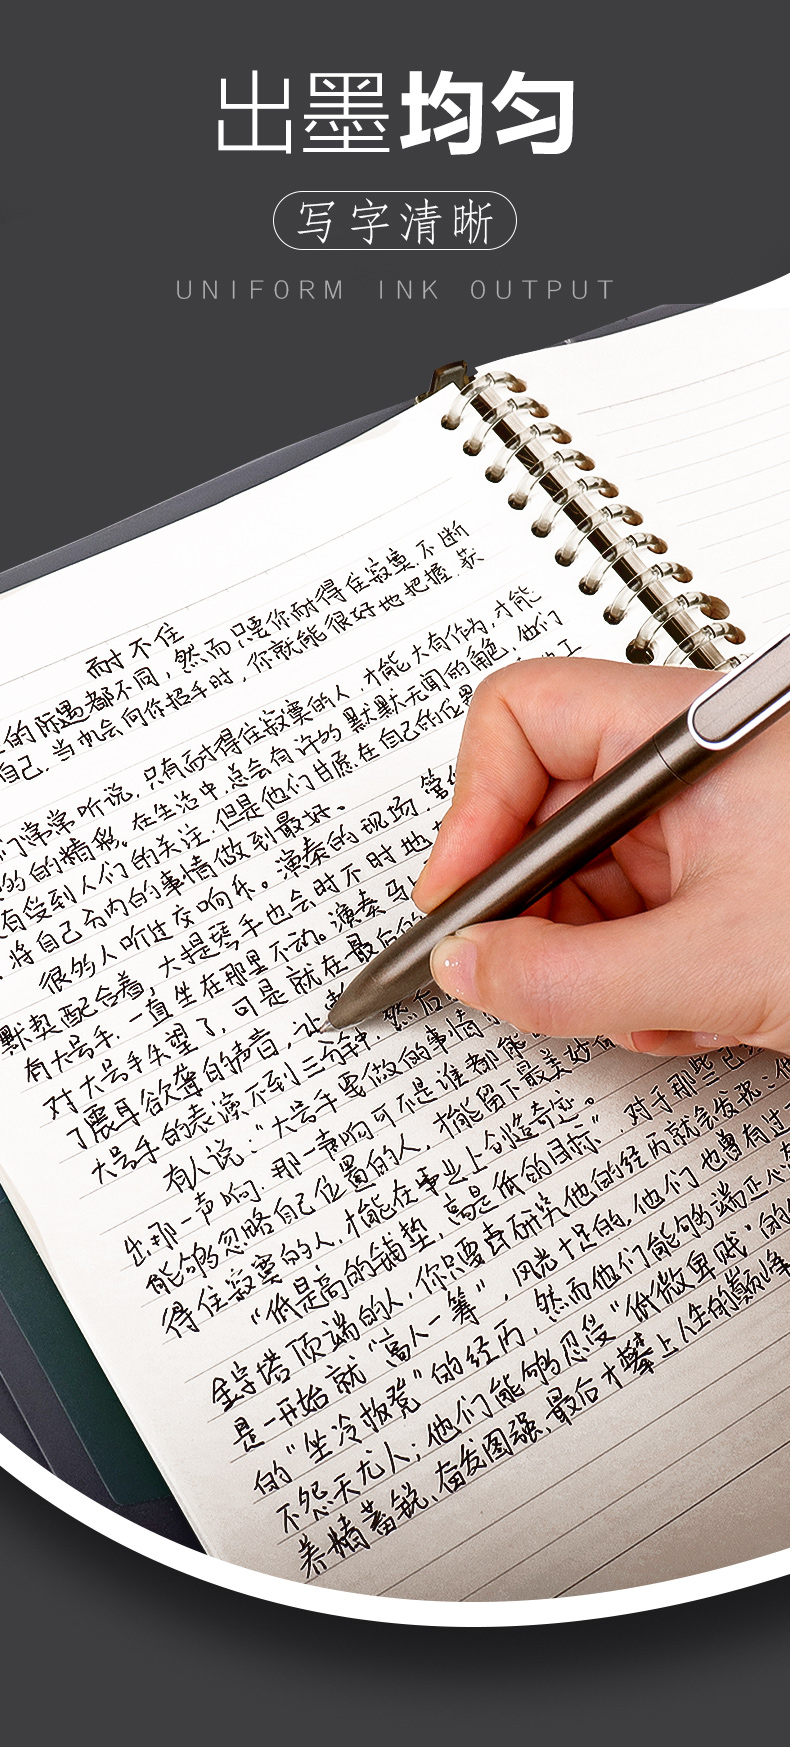 出墨均匀
写字清晰
UNIFORM INK OUTPUT
耐不住
的际遇都不同，然而只要你耐得住寂寞，不断
自己，当机会向你招手时，你就能很好地把握，获
们常常听说，只有耐得住寂寞的人，才能大有作为，才能
的精彩。在生活中，总会有许的默默无闻的角色，他们
有受到人们的关注，但是他们甘愿在自己的位置
将自己分内的事情做到最好。
很多人听过交响乐。演奏的现场，管
默契配合着，大提琴手也会时不时地
有大号手，一直坐在那里不动。演奏马上
对大号手失望了，可是就在最后的
了震耳欲聋的声音，让
大号手的表演不到三分钟，然后
有人说：“大号手要做的事情
出那一声响，那一声响可不是谁都能
能够忽略自己位置的人，才能留下最美妙
得住寂寞的人，才能在事业上创造奇迹。
“低是高的铺垫，高是低的目标”，对于那些已
金字塔顶端的人，你只要去研究他的经历就会发现：他
是一开始就“高人一筹”，风光十足的，他们也曾有过
的“坐冷板凳”的经历，然而他们能够端正心
不怨天尤人；他们能够忍受“低微卑贱”的
养精蓄锐，奋发图强，最后才攀上人生的巅峰